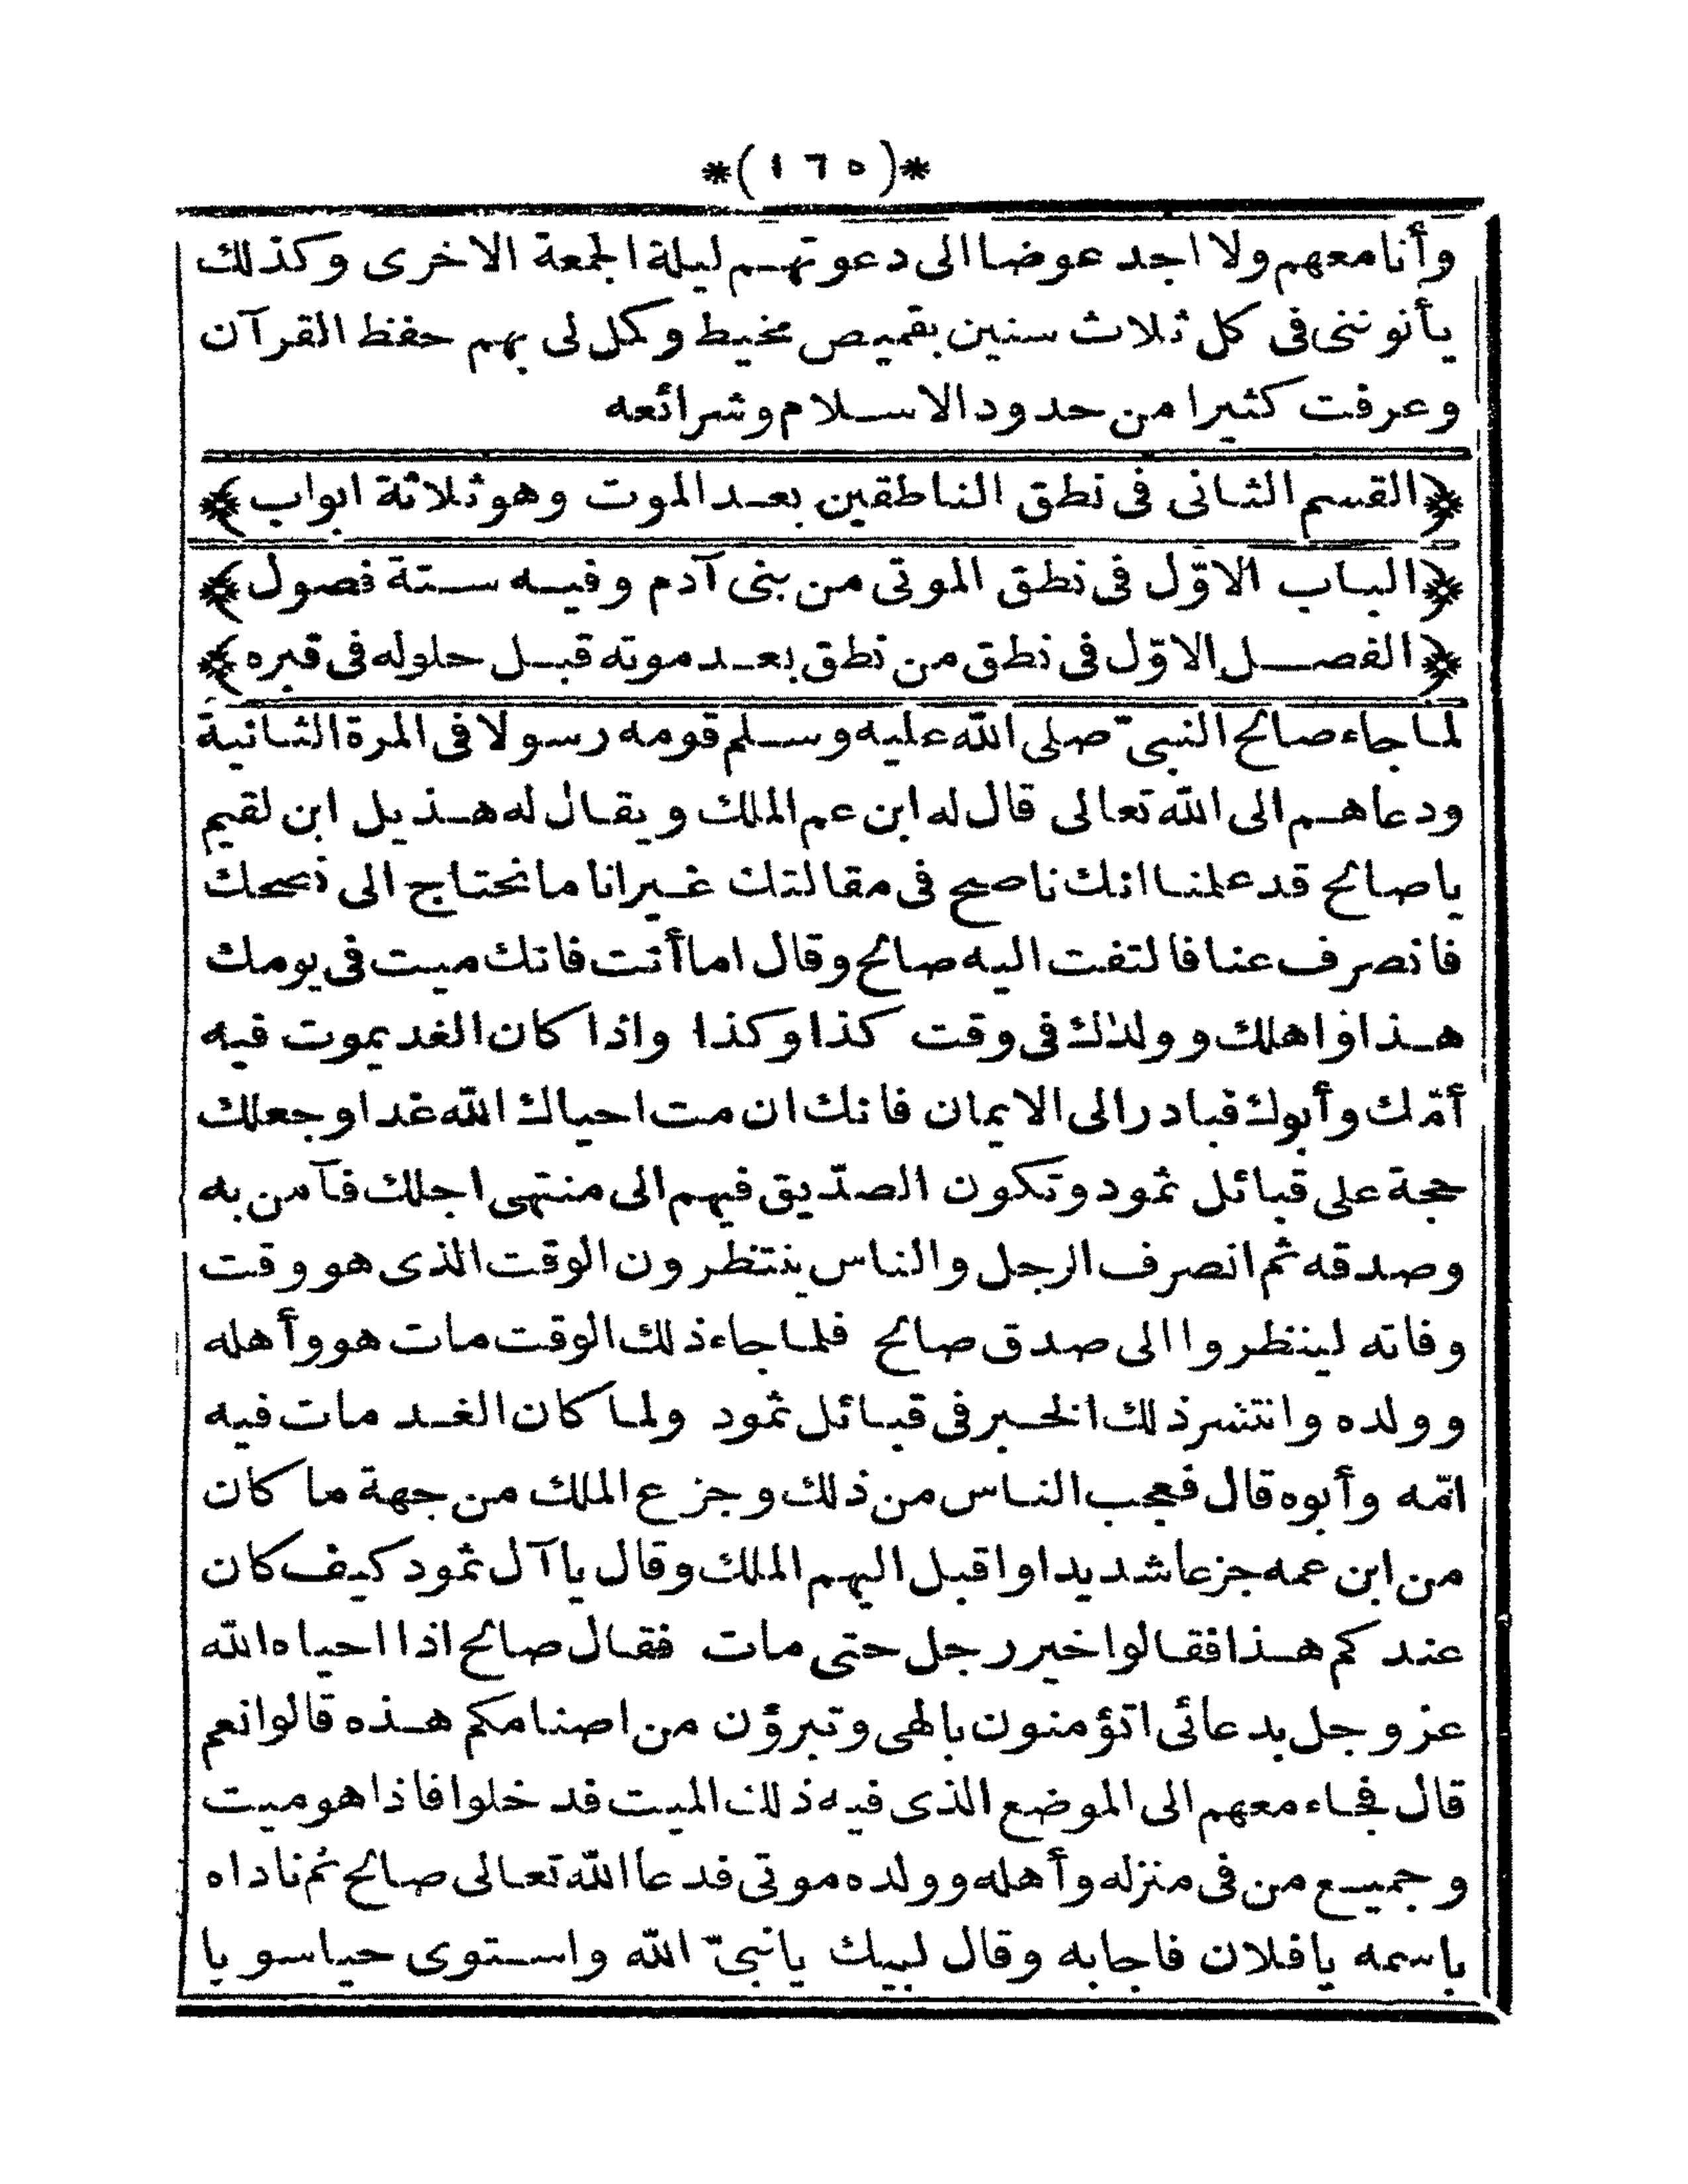 *(١٦٥)*
وأنا معهم ولا اجد عوضا الى دعوتهم ليلة الجمعة الاخرى وكذلك
يأنوننى فى كل ثلاث سنين بقميص مخيط وكمل لى بهم حفظ القرآن
وعرفت كثيرا من حدود الاسلام وشرائعه
﴿القسم الثانى فى نطق الناطقين بعد الموت وهو ثلاثة ابواب﴾
﴿الباب الاوّل فى نطق الموتى من بنى آدم وفيه ستة فصول﴾
﴿الفصل الاوّل فى نطق من نطق بعد موته قبل حلوله فى قبره﴾
لما جاء صالح النبىّ صلى الله عليه وسلم قومه رسولا فى المرة الثانية
ودعاهم الى الله تعالى قال له ابن عم الملك ويقال له هذيل ابن لقيم
يا صالح قد علمنا انك ناصح فى مقالتك غير انا ما نحتاج الى نصحك
فانصرف عنا فالتفت اليه صالح وقال اما أنت فانك ميت فى يومك
هذا واهلك وولدك فى وقت كذا وكذا واذا كان الغد يموت فيه
أمّك وأبوك فبادر الى الايمان فانك ان مت احياك الله غدا وجعلك
حجة على قبائل ثمود وتكون الصدّيق فيهم الى منتهى اجلك فآمن به
وصدقه ثم انصرف الرجل والناس ينتظرون الوقت الذى هو وقت
وفاته لينظروا الى صدق صالح فلما جاء ذلك الوقت مات هو وأهله
وولده وانتشر ذلك الخبر فى قبائل ثمود ولما كان الغد مات فيه
امّه وأبوه قال فعجب الناس من ذلك وجزع الملك من جهة ما كان
من ابن عمه جزعا شديدا واقبل اليهم الملك وقال يا آل ثمود كيف كان
عندكم هذا فقالوا خير رجل حتى مات فقال صالح اذا احياه الله
عز وجل بدعائى اتؤمنون بالهى وتبرؤن من اصنامكم هذه قالوا نعم
قال فجاء معهم الى الموضع الذى فيه ذلك الميت فدخلوا فاذا هو ميت
وجميع من فى منزله وأهله وولده موتى فدعا الله تعالى صالح ثم ناداه
باسمه يا فلان فاجابه وقال لبيك يا نبىّ الله واستوى حيا سويا